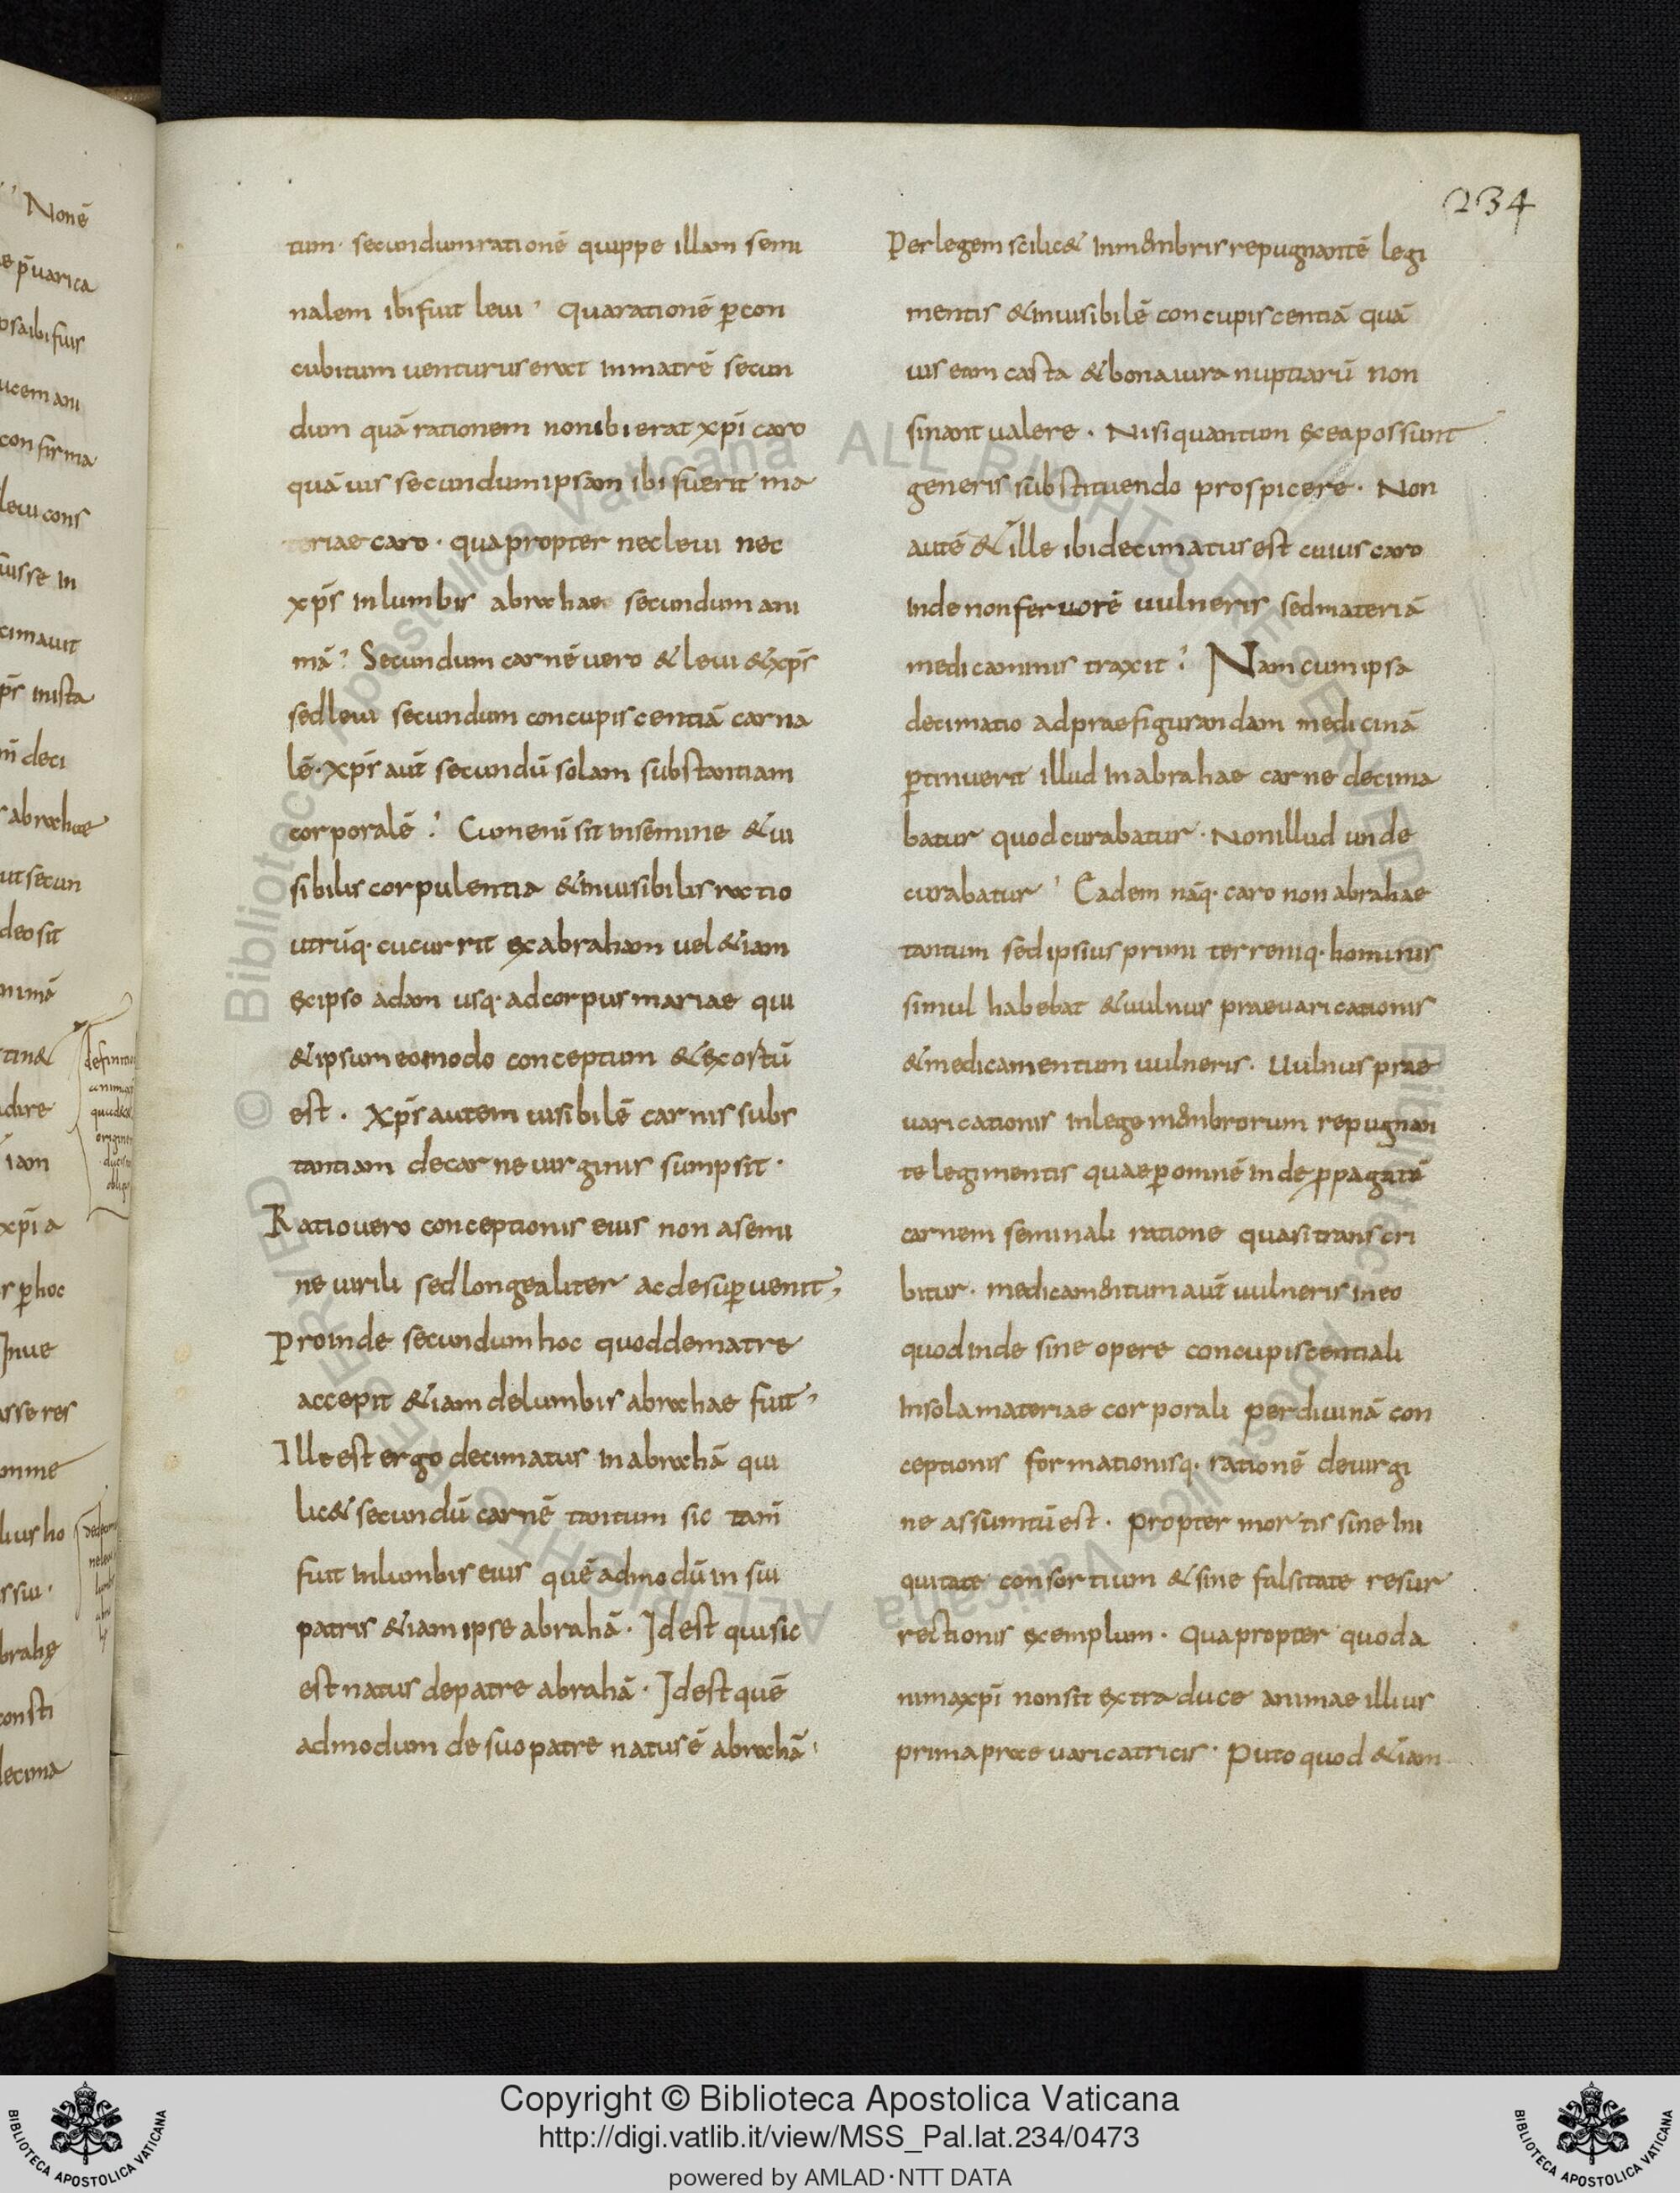 234
tum· secundum rationē quippe illam semi
nalem ibi fuit leui ' qua rationē p̄ con
cubitum uenturus erat in matrē secun
dum quā rationem non ibi erat xp̄i caro
quā uis secundum ipsam ibi fuerit ma
teriae caro · qua propter nec leui nec
xp̄s in lumbis abrahae secundum ani
mā : Secundum carnē uero & leui & xp̄s
sed leui secundum concupiscentiā carna
lē · xp̄s aut̄ secundū solam substantiam
corporalē : Cum enī sit in semine & ui
sibilis corpulentia & inuisibilis ratio
utrūq· cucurrit ex abraham uel & iam
ex ipso adam usq· ad corpus mariae qui
& ipsum eo modo conceptum & exortū
est · Xp̄s autem uisibilē carnis subs
tantiam de carne uirginis sumpsit ·
Ratio uero conceptionis eius non a semi
ne uirili sed longe aliter ac desup̄ uenit,
Proinde secundum hoc quod de matre
accepit & iam de lumbis abrahae fuit,
Ille est ergo decimatus in abrahā qui
lic& secundū carnē tantum sic tam̄
fuit in lumbis eius quē admodū in sui
patris & iam ipse abrahā · Id est qui sic
est natus de patre abrahā · Id est quē
admodum de suo patre natus ē abrahā ·
Per legem scilic& in mēmbris repugnantē legi
mentis & inuisibilē concupiscentiā quā
uis eam casta & bona iura nuptiarū non
sinant ualere · Nisi quantum ex ea possunt
generis substituendo prospicere · Non
autē & ille ibi decimatus est cuius caro
inde non feruorē uulneris sed materiā
medicaminis traxit : Nam cum ipsa
decimatio ad praefigurandam medicinā
p̄tinuerit illud in abrahae carne decima
batur quod curabatur · Non illud unde
curabatur ' Eadem nāq· caro non abrahae
tantum sed ipsius primi terreniq· hominis
simul habebat & uulnus praeuaricationis
& medicamentum uulneris · Uulnus prae
uaricationis in lege mēmbrorum repugnan
te legi mentis quae p̄ omnē inde ꝓpagatā
carnem seminali ratione quasi transcri
bitur · medicamēntum aut̄ uulneris in eo
quod inde sine opere concupiscentiali
in sola materiae corporali per diuinā con
ceptionis formationisq· rationē de uirgi
ne assumtū est · propter mortis sine ini
quitate consortium & sine falsitate resur
rectionis exemplum · Qua propter quod a
nima xp̄i non sit ex traduce animae illius
prima praeuaricatricis · Puto quod & iam
Copyright © Biblioteca Apostolica Vaticana
http://digi.vatlib.it/view/MSS_Pal.lat.234/0473
powered by AMLAD·NTT DATA